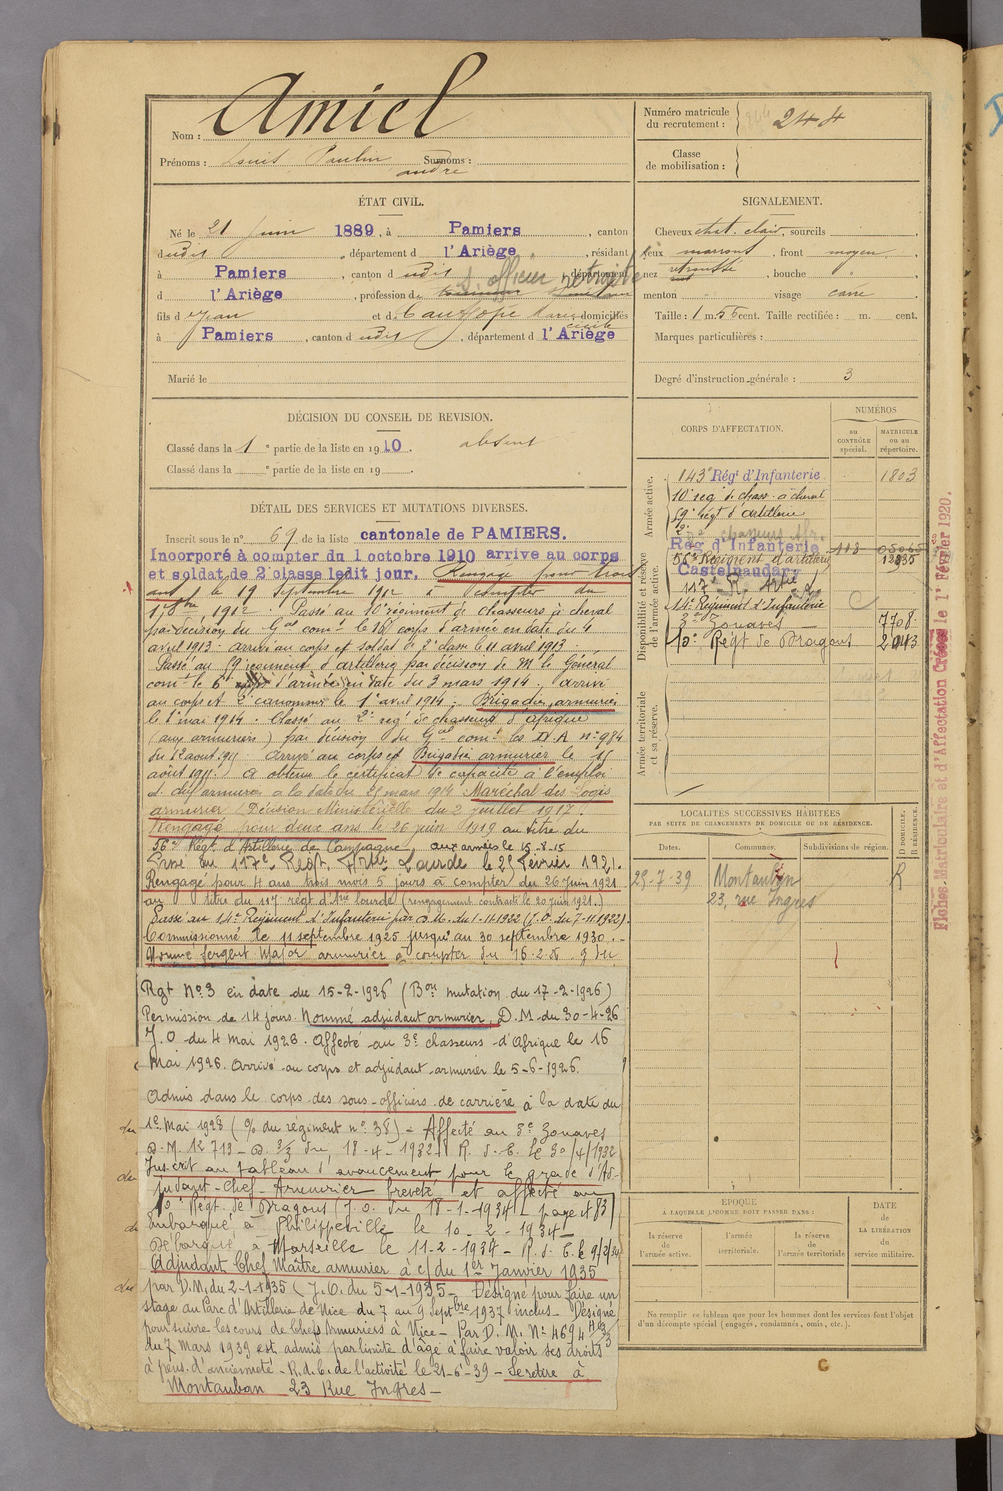 Nom : Amiel
Prénoms : Louis Paulin Surnoms :
andré
Numéro matricule
du recrutement : 244
Classe
de mobilisation :
ÉTAT CIVIL.
Né le 21 juin 1889, à Pamiers, canton
dudit, département d l'Ariège, résidant
à Pamiers, canton dudit, département
d l'Ariège, profession de S. officier retraité
fils d Jean et d Marie domiciliés
Cécile
à Pamiers, canton dudit, département d l'Ariège
Marié le
SIGNALEMENT.
Cheveux chat. clair, sourcils
yeux marrons, front moyen
nez retroussé, bouche
menton visage carré
Taille : 1 m. 56 cent. Taille rectifiée : m. cent.
Marques particulières :
Degré d'instruction générale : 3
DÉCISION DU CONSEIL DE REVISION.
Classé dans la 1e partie de la liste en 1910. absent
Classé dans la e partie de la liste en 19 .
CORPS D'AFFECTATION.
NUMÉROS
au
CONTRÔLE
spécial.
MATRICULE
ou au
répertoire.
Armée active.
143e Régt d'Infanterie 1803
10e reg. de chass. à cheval
19e Régt d'artillerie
Disponibilité et réserve
de l'armée active.
Rég d'Infanterie
56e Régiment d'artillerie
Castelnaudary
117e R. Artie L
14e Régiment d'Infanterie
3e Zouaves 7708
10e Régt de Dragons 2943
Armée territoriale
et sa réserve.
DÉTAIL DES SERVICES ET MUTATIONS DIVERSES.
Inscrit sous le n° 69 de la liste cantonale de PAMIERS.
Incorporé à compter du 1 octobre 1910 arrive au corps
et soldat de 2e classe ledit jour. Rengagé pour trois
ans le 19 Septembre 1912 à compter du
1er 8bre 1912. Passé au 10e régiment de chasseurs à cheval
par décision du Gal comt le 16e corps d'armée en date du 4
avril 1913. arrivé au corps et soldat de 2e classe le 11 avril 1913.
Passé au 19e régiment d'artillerie par décision de M. le Général
comt le 6e d'armée en date du 3 mars 1914. Arrivé
au corps et 2e canonnier le 1er avril 1914. Brigadier armurier
le 1er mai 1914. Classé au 2e reg de chasseurs d'Afrique
(aux armuriers) par décision du Gal comt les D.A n° 984
du 12 août 1911. Arrivé au corps et Brigadier armurier le 15
août 1911. A obtenu le certificat de capacité à l'emploi
de chef armurier à la date du 25 mars 1916. Maréchal des Logis
armurier (Décision Ministérielle du 2 juillet 1917.
Rengagé pour deux ans le 26 juin 1919 au titre du
56e Régt d'Artillerie de Campagne, aux armées le 15-8-15
Passé au 117e Régt. Artie Lourde le 25 Février 1921.
Rengagé pour 4 ans trois mois 5 jours à compter du 26 Juin 1921
au titre du 117e régt d'Arie lourde (rengagement contracté le 20 juin 1921.)
Passé au 14e Régiment d'Infanterie par D.M. du 1-11-1922 (J.O. du 7-11-1922).
Commissionné le 11 septembre 1925 jusqu'au 30 septembre 1930.-
Nommé Sergent Major armurier à compter du 16.2.26 O du
Rgt N° 3 en date du 15-2-1926 (Bon mutation du 17-2-1926)
Permission de 14 jours. Nommé adjudant armurier, D.M. du 30-4-26
J.O du 4 mai 1926. Affecté au 3e chasseurs d'Afrique le 16
Mai 1926. Arrivé au corps et adjudant armurier le 5-6-1926.
Admis dans le corps des sous-officiers de carrière à la date du
du 1er Mai 1928 (O/ du régiment n° 38) - Affecté au 3e Zouaves
D.M. 12713 - D. 3/3 du 18-4-1932 R. d. C. le 30/4/1932
de Inscrit au tableau d'avancement pour le grade d'Ad-
judant-Chef-Armurier breveté et affecté au
10e Régt de Dragons (J.O. du 18-1-1934 - page 583)
de Embarqué à Philippeville le 10-2-1934 -
Débarqué à Marseille le 11-2-1934 - R. d. C. le 9/2/34
Adjudant Chef Maître armurier à c/ du 1er Janvier 1935
du par D.M. du 2-1-1935 (J.O. du 5-1-1935 - Désigné pour faire un
stage au Parc d'Artillerie de Nice du 7 au 9 Septbre 1937 inclus - Désigné
pour suivre les cours de Chefs Armuriers à Nice - Par D. M. N° 4694
du 7 Mars 1939 est admis par limite d'âge à faire valoir ses droits
à pens. d'ancienneté - R.d.C. de l'activité le 21-6-39 - Se retire à
Montauban 23 Rue Ingres -
LOCALITÉS SUCCESSIVES HABITÉES
PAR SUITE DE CHANGEMENTS DE DOMICILE OU DE RÉSIDENCE.
Dates. Communes. Subdivisions de région.
D DOMICILE.
R RÉSIDENCE.
25-7-39 Montauban R
23, rue Ingres
ÉPOQUE
À LAQUELLE L'HOMME DOIT PASSER DANS :
la réserve
de
l'armée active.
l'armée
territoriale.
la réserve
de
l'armée territoriale
DATE
de
LA LIBÉRATION
du
service militaire.
Ne remplir ce tableau que pour les hommes dont les services font l'objet
d'un décompte spécial (engagés, condamnés, omis, etc.).
Fiches Matriculaire et d'Affectation Créées le 1er Février 1920.